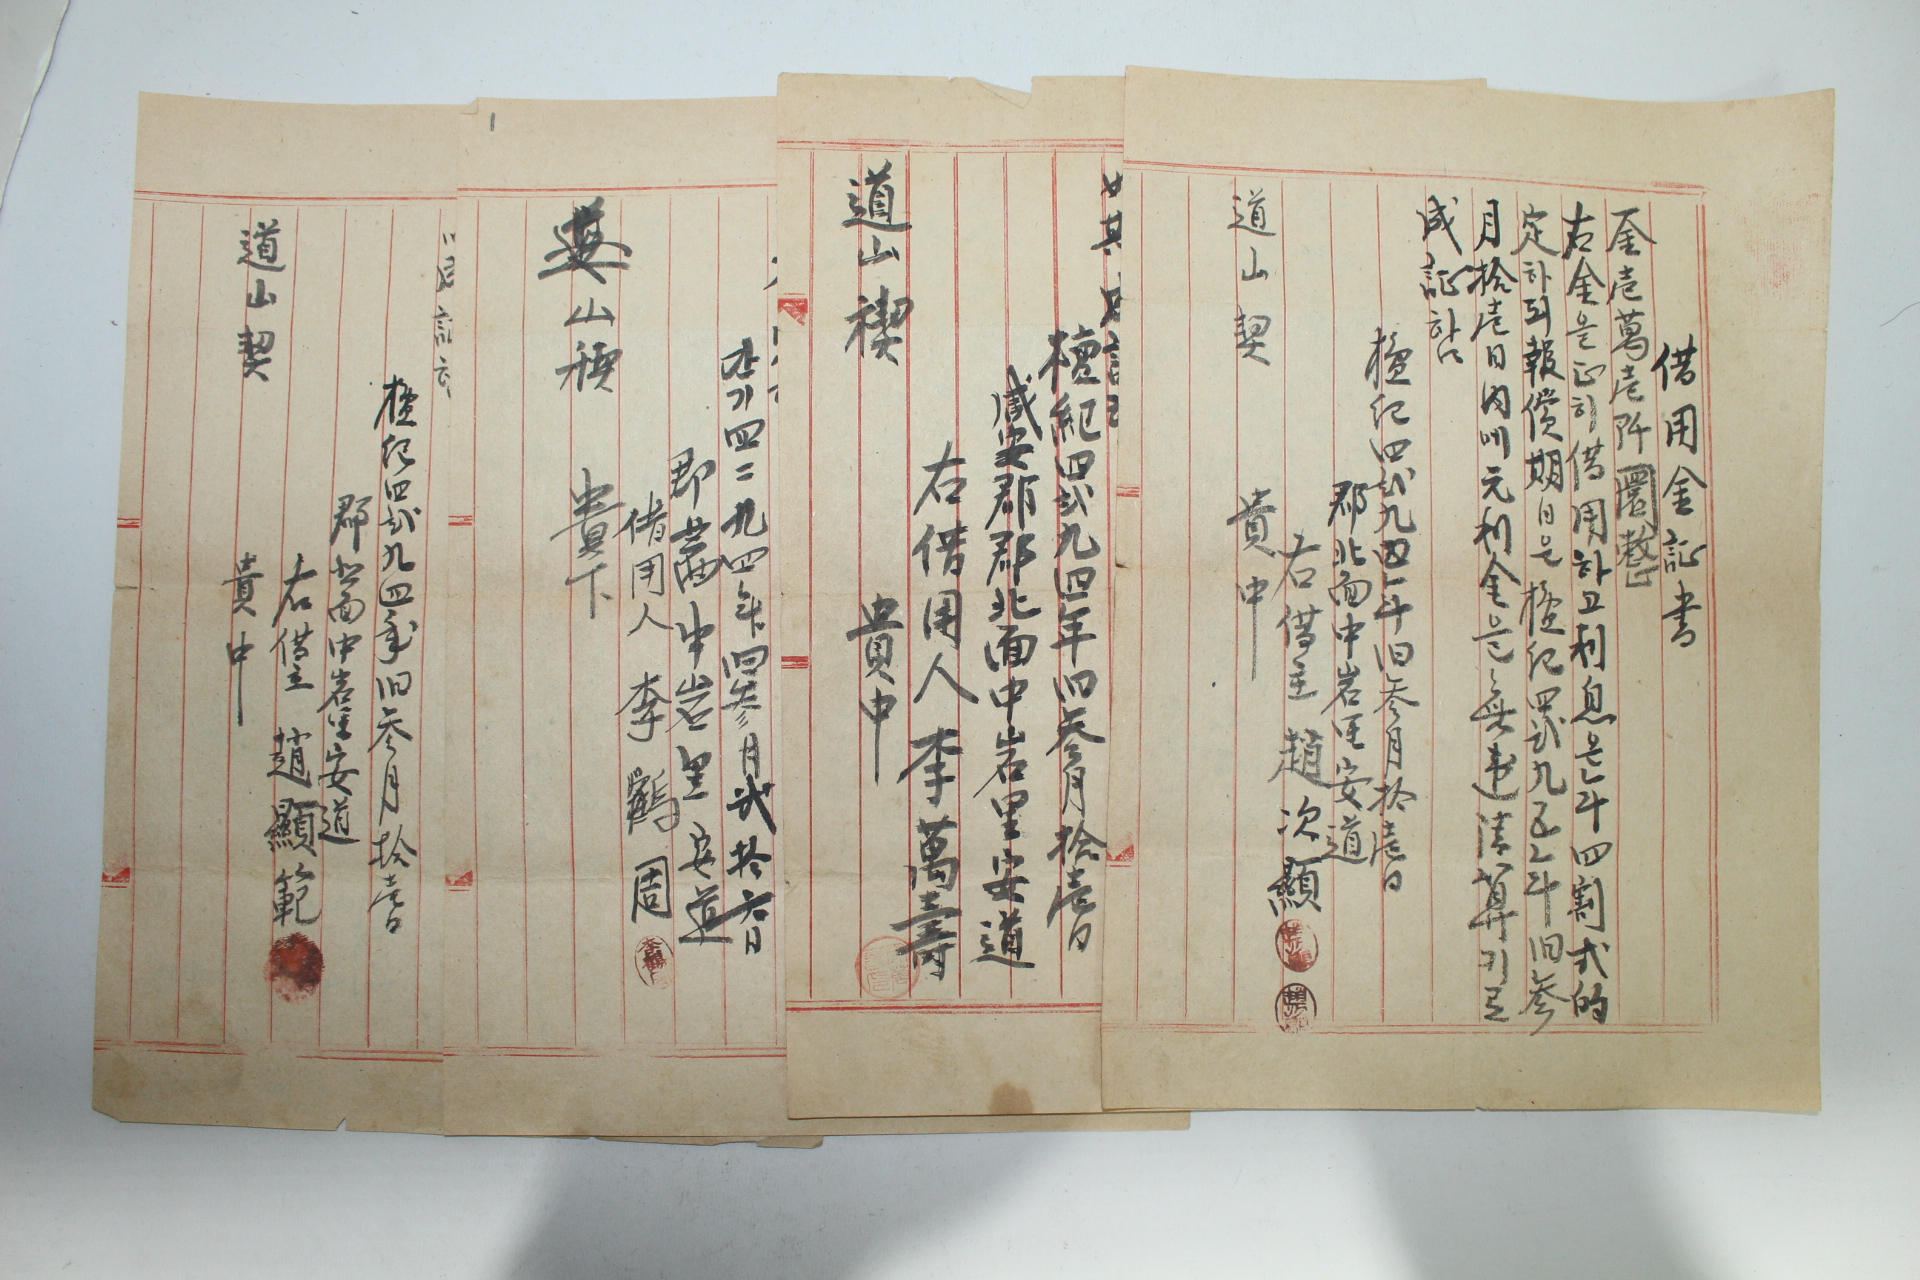 借用金証書
金壱萬壱阡圜整
右金은正히借用하고利息은年四割式的
定하되報償期日은檀紀四弐九五年旧参
月拾壱日内로元利金은無違清算키로
成証함
檀紀四弐九四年旧参月拾壱日
郡北面中岩里安道
右借主 趙次顯
道山契 貴中
檀紀四弐九四年旧参月拾壱日
咸安郡郡北面中岩里安道
右借用人 李萬壽
道山稧 貴中
단기四二九四年旧参月弐拾六日
郡北面中岩里安道
借用人 李鶴周
山稧 貴下
檀紀四弐九四年旧参月拾壱日
郡北面中岩里安道
右借主 趙顯範
道山契 貴中